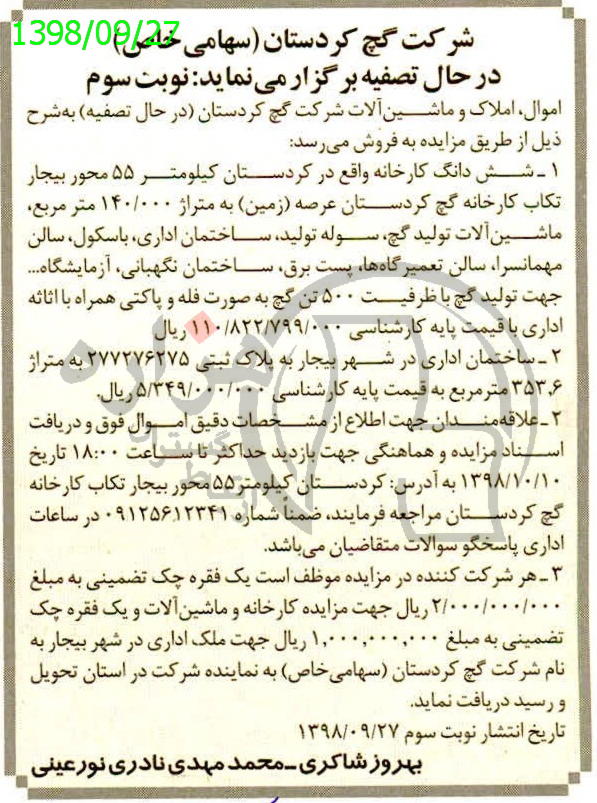 1398/09/27
شرکت گچ کردستان (سهامی خاص)
در حال تصفیه برگزار می‌نماید: نوبت سوم
اموال، املاک و ماشین‌آلات شرکت گچ کردستان (در حال تصفیه) به‌شرح
ذیل از طریق مزایده به فروش می‌رسد:
۱ ـ شش دانگ کارخانه واقع در کردستان کیلومتر ۵۵ محور بیجار
تکاب کارخانه گچ کردستان عرصه (زمین) به متراژ ۱۴۰/۰۰۰ متر مربع،
ماشین‌آلات تولید گچ، سوله تولید، ساختمان اداری، باسکول، سالن
مهمانسرا، سالن تعمیرگاه‌ها، پست برق، ساختمان نگهبانی، آزمایشگاه...
جهت تولید گچ با ظرفیت ۵۰۰ تن گچ به صورت فله و پاکتی همراه با اثاثه
اداری با قیمت پایه کارشناسی ۱۱۰/۸۲۲/۷۹۹/۰۰۰ ریال
۲ ـ ساختمان اداری در شهر بیجار به پلاک ثبتی ۲۷۷۲۷۶۲۷۵ به متراژ
۳۵۳,۶ مترمربع به قیمت پایه کارشناسی ۵/۳۴۹/۰۰۰/۰۰۰ ریال.
۲ ـ علاقه‌مندان جهت اطلاع از مشخصات دقیق اموال فوق و دریافت
اسناد مزایده و هماهنگی جهت بازدید حداکثر تا ساعت ۱۸:۰۰ تاریخ
۱۳۹۸/۱۰/۱۰ به آدرس: کردستان کیلومتر ۵۵ محور بیجار تکاب کارخانه
گچ کردستان مراجعه فرمایند، ضمناً شماره ۰۹۱۲۵۶۱۲۳۴۱ در ساعات
اداری پاسخگو سوالات متقاضیان می‌باشد.
۳ ـ هر شرکت کننده در مزایده موظف است یک فقره چک تضمینی به مبلغ
۲/۰۰۰/۰۰۰/۰۰۰ ریال جهت مزایده کارخانه و ماشین‌آلات و یک فقره چک
تضمینی به مبلغ ۱,۰۰۰,۰۰۰,۰۰۰ ریال جهت ملک اداری در شهر بیجار به
نام شرکت گچ کردستان (سهامی‌خاص) به نماینده شرکت در استان تحویل
و رسید دریافت نماید.
تاریخ انتشار نوبت سوم ۱۳۹۸/۰۹/۲۷
بهروز شاکری ـ محمد مهدی نادری نورعینی